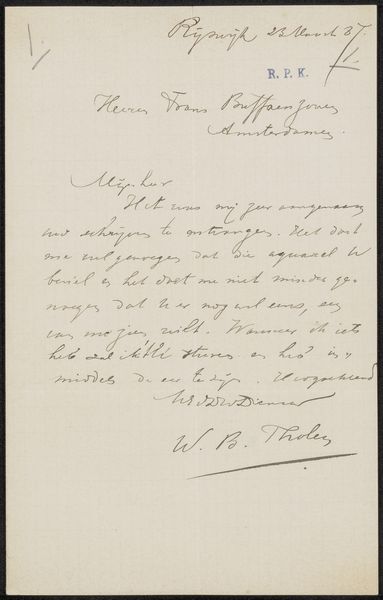 1.
Rijswijk 23 Maart 87.
1.
R. P. K.
Heeren Frans Buffa en Zonen
Amsterdam.
Mijnheer
Het was mij zeer aangenaam
uw schrijven te ontvangen. Het doet
me veel genoegen dat die aquarel U
beviel en het doet me niet minder ge-
noegen dat U er nog wel eens, een
van me zien wilt. Wanneer ik iets
heb zal ik het sturen en heb in-
middels de eer te zijn. Hoogachtend
UEd Dw Dienaar
W. B. Tholen